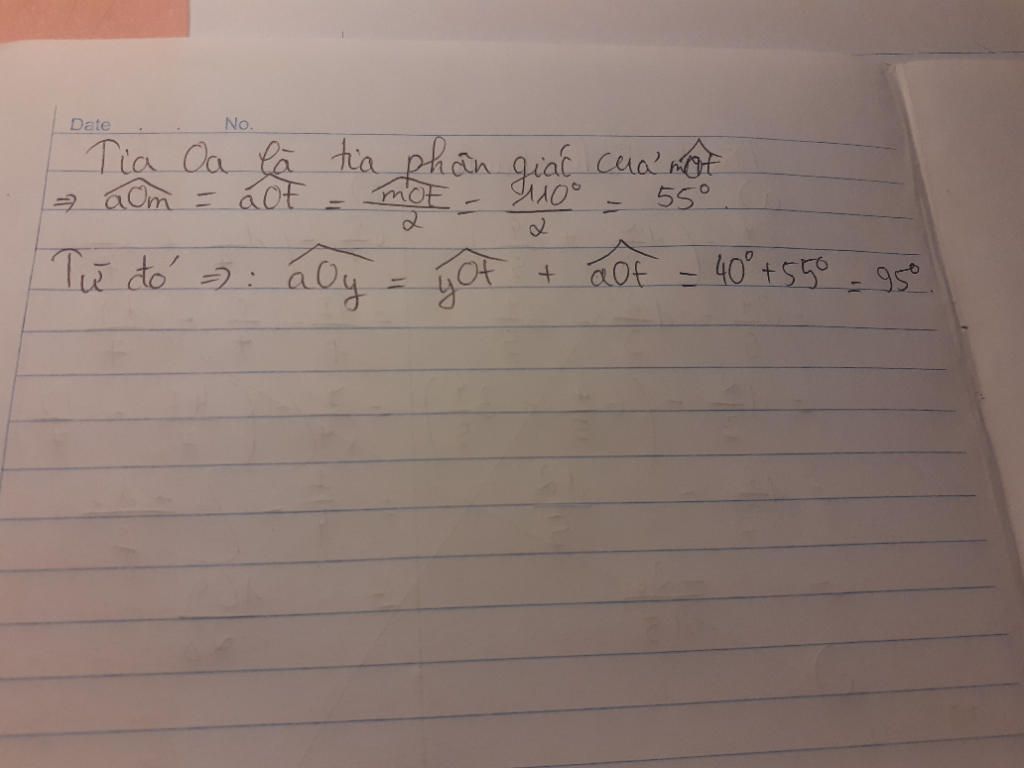 Date . . No.
Tia Oa là tia phân giác của mOt
⇒ aOm = aOt = mOt/2 = 110°/2 = 55°.
Từ đó ⇒: aOy = yOt + aOt = 40° + 55° = 95°.